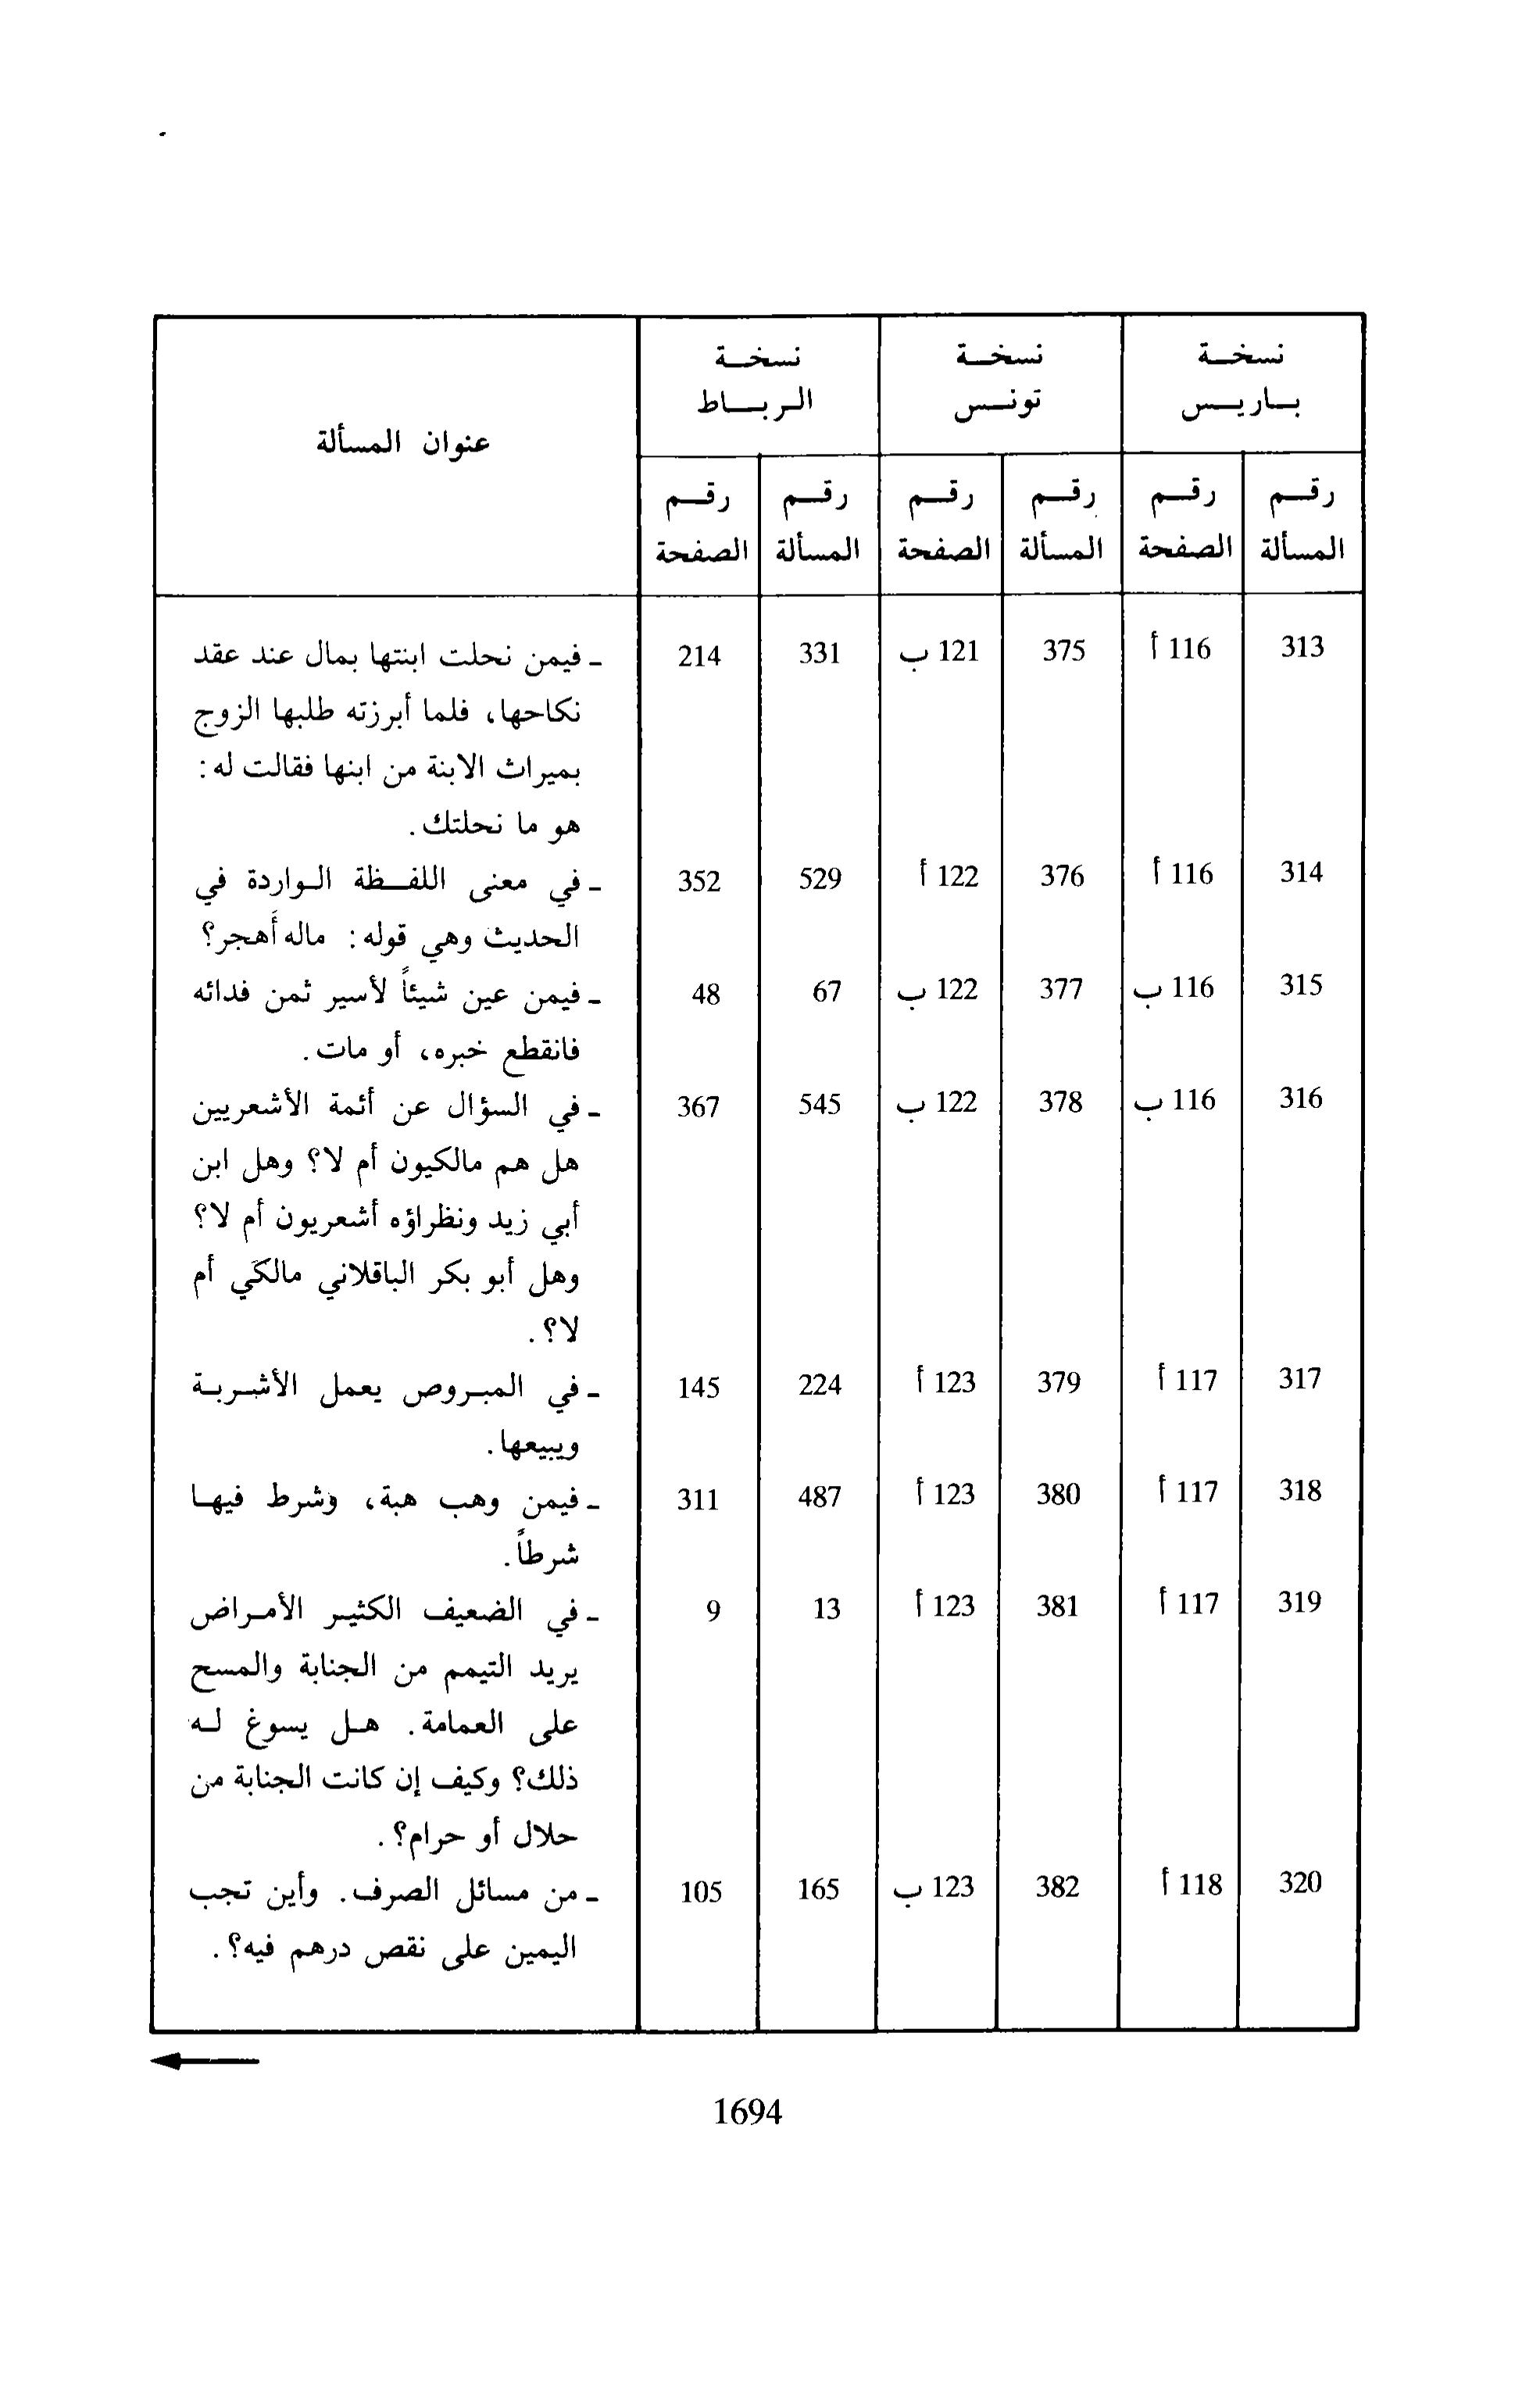 نسخة نسخة نسخة
باريس تونس الرباط عنوان المسألة
رقم رقم رقم رقم رقم رقم
المسألة الصفحة المسألة الصفحة المسألة الصفحة
313 116 أ 375 121 ب 331 214 - فيمن نحلت ابنتها بمال عند عقد
نكاحها، فلما أبرزته طلبها الزوج
بميراث الابنة من ابنها فقالت له :
هو ما نحلتك .
314 116 أ 376 122 أ 529 352 - في معنى اللفظة الواردة في
الحديث وهي قوله : ماله أهجر؟
315 116 ب 377 122 ب 67 48 - فيمن عين شيئاً لأسير ثمن فدائه
فانقطع خبره، أو مات .
316 116 ب 378 122 ب 545 367 - في السؤال عن أئمة الأشعريين
هل هم مالكيون أم لا؟ وهل ابن
أبي زيد ونظراؤه أشعريون أم لا؟
وهل أبو بكر الباقلاني مالكي أم
لا؟ .
317 117 أ 379 123 أ 224 145 - في المبروص يعمل الأشربة
ويبيعها .
318 117 أ 380 123 أ 487 311 - فيمن وهب هبة، وشرط فيها
شرطاً .
319 117 أ 381 123 أ 13 9 - في الضعيف الكثير الأمراض
يريد التيمم من الجنابة والمسح
على العمامة . هل يسوغ له
ذلك؟ وكيف إن كانت الجنابة من
حلال أو حرام؟ .
320 118 أ 382 123 ب 165 105 - من مسائل الصرف . وأين تجب
اليمين على نقص درهم فيه؟ .
1694